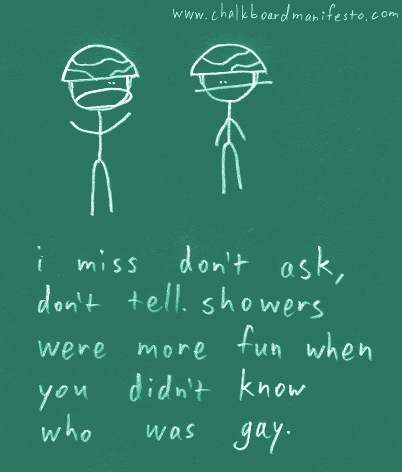 www.chalkboardmanifesto.com
i miss don't ask,
don't tell. showers
were more fun when
you didn't know
who was gay.